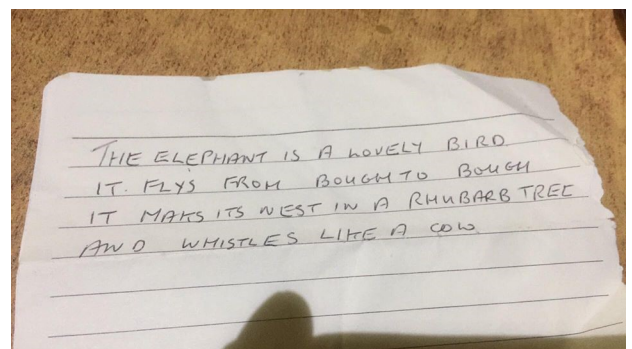 THE ELEPHANT IS A LOVELY BIRD
IT. FLYS FROM BOUGH TO BOUGH
IT MAKS ITS NEST IN A RHUBARB TREE
AND WHISTLES LIKE A COW